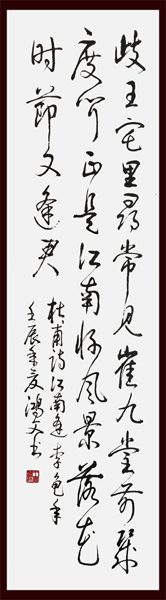 歧王宅里尋常见崔九堂前幾
度闻正是江南好风景落花
时節又逢君
杜甫诗江南逢李龟年
壬辰年夏鸿文书